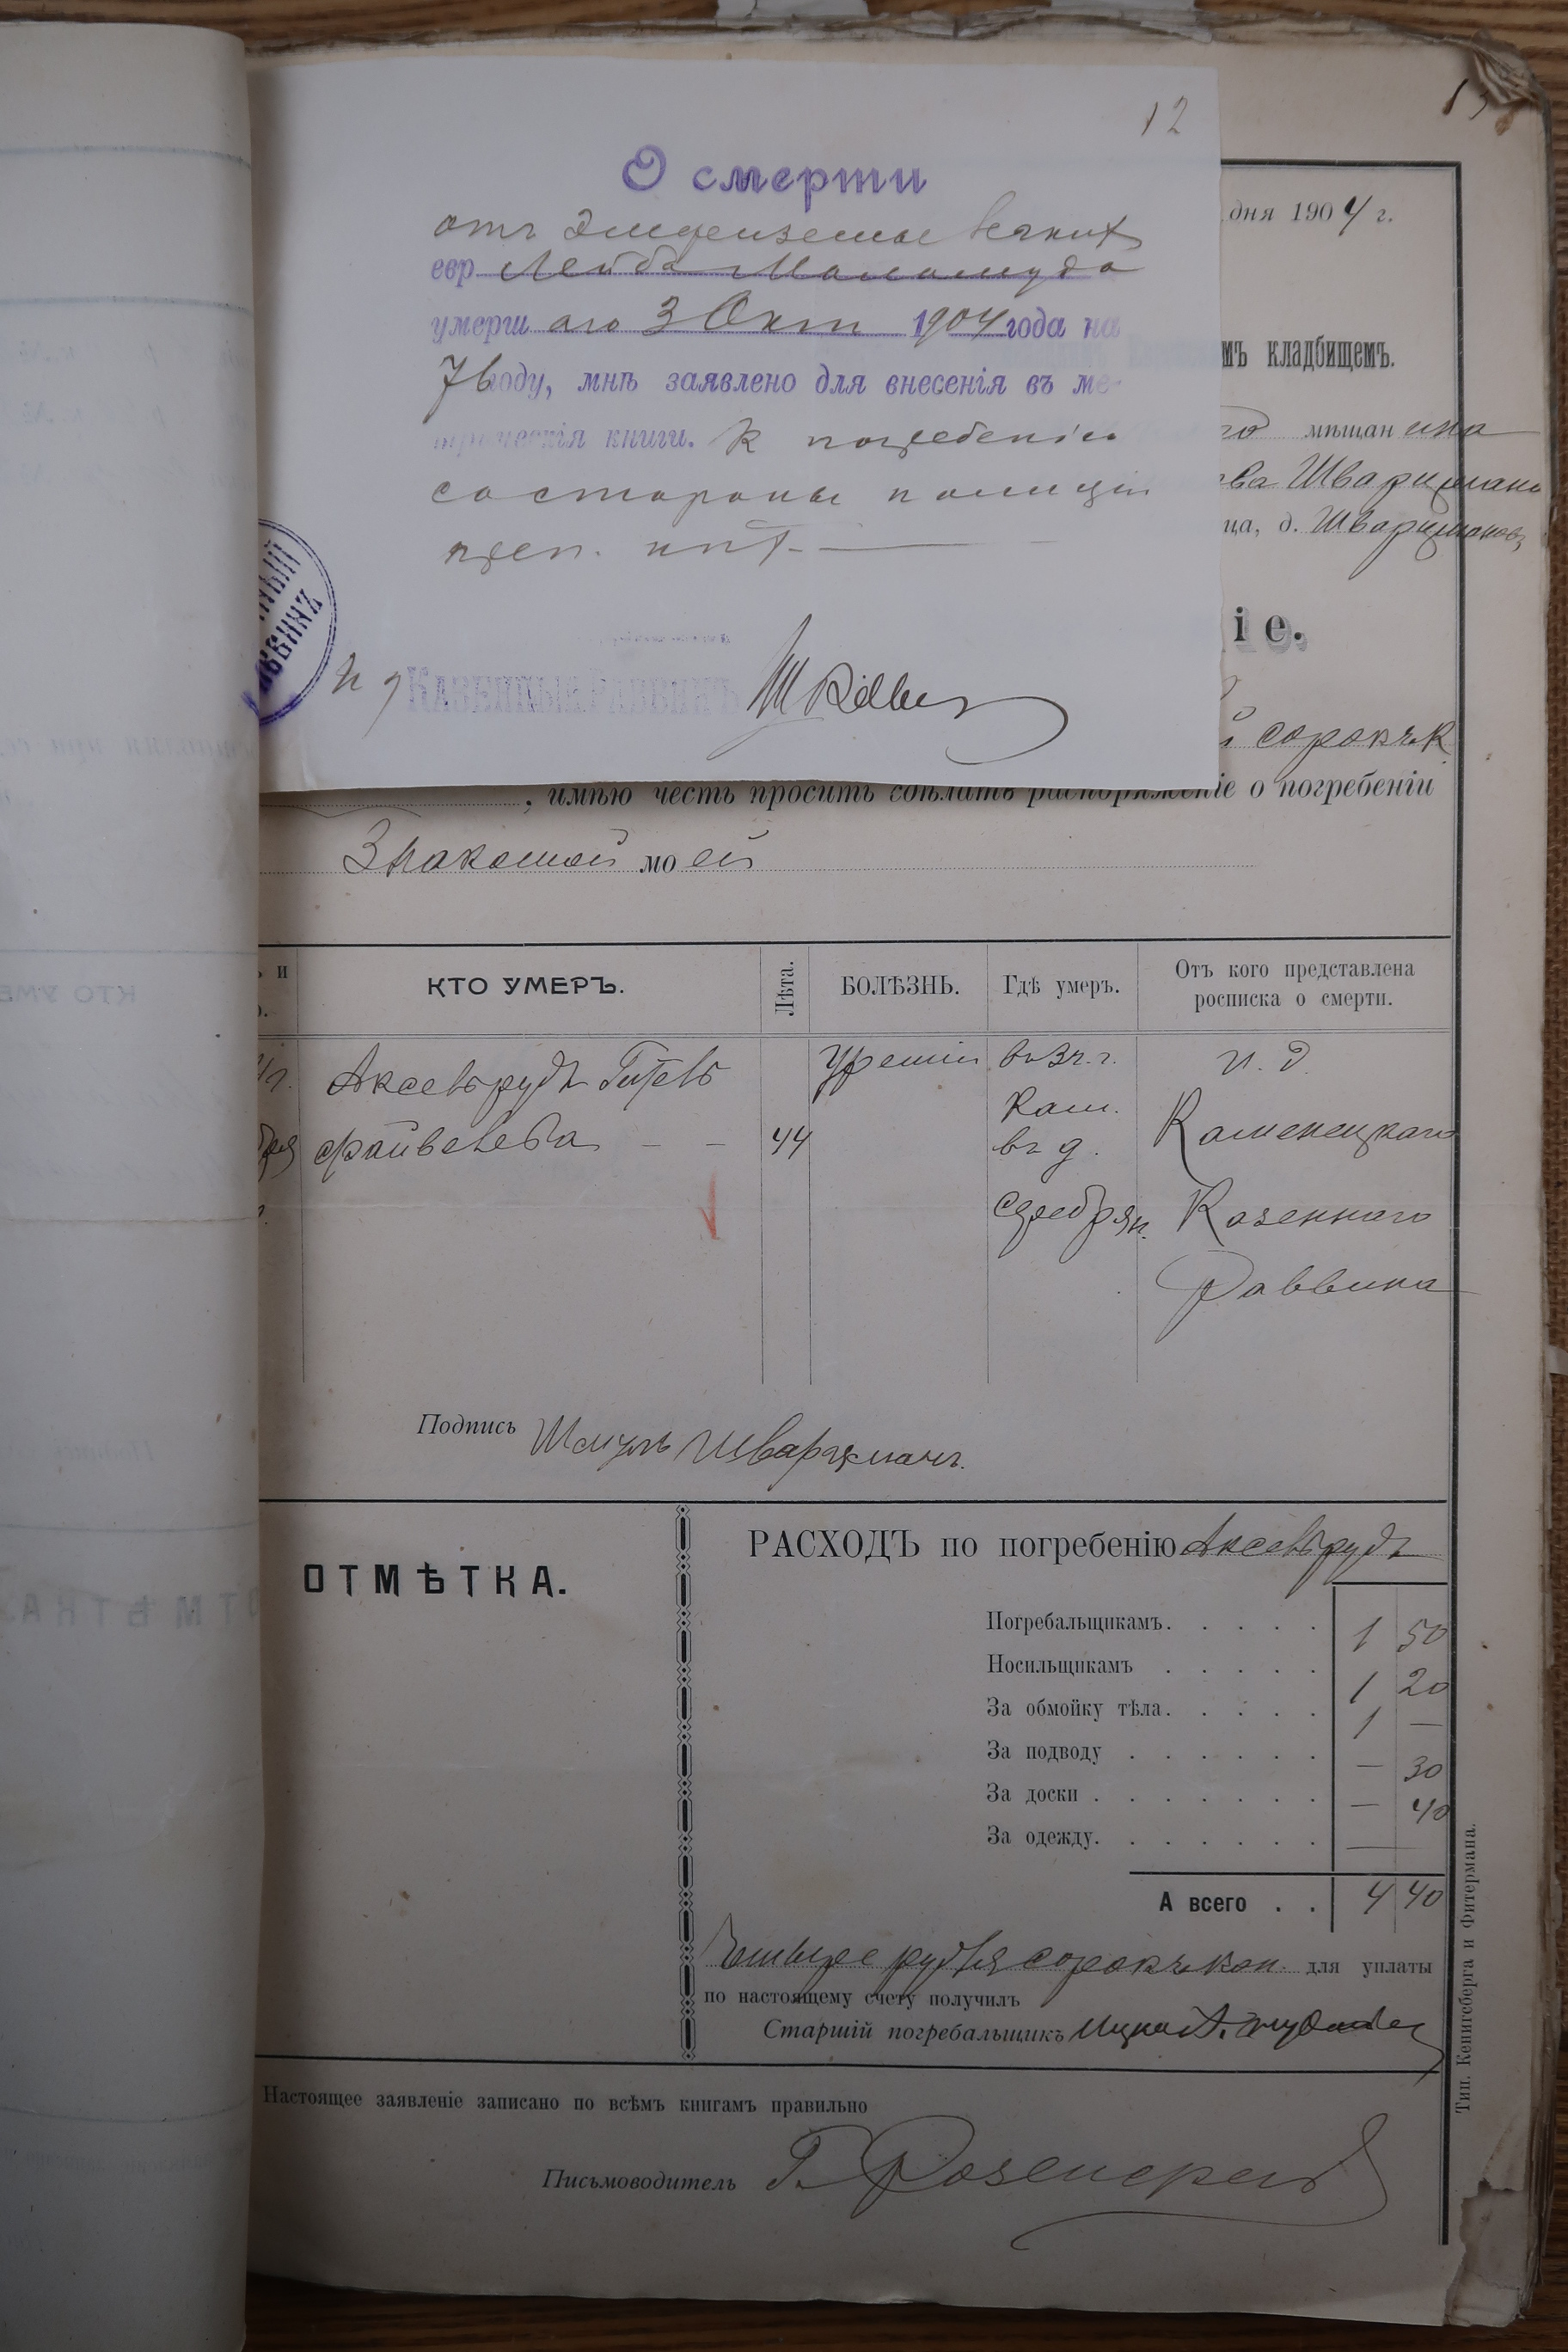 12
О смерти
отъ легкихъ
евр Лейба Маламуда
умерш аго 3 Окт 1904 года на
76 году, мнѣ заявлено для внесенія въ ме-
трическія книги. К погребенію
со стороны полиціи
преп. нѣт.
И д Казенный Раввинъ
дня 1904 г.
мъ кладбищемъ.
мѣщанина
Шварцмана
ца, д. Шварцманов
іе.
сорокъ к
, имѣю честь просить сдѣлать распоряженіе о погребеніи
Знакомой моей
КТО УМЕРЪ. Лѣта. БОЛѢЗНЬ. Гдѣ умеръ. Отъ кого представлена
росписка о смерти.
Аксельрудъ уреміи въ 3 ч. г. И. д.
Файвелева 44 Кам. въ д. Каменецкаго
Серебрян. Казеннаго
Раввина
Подпись Шмуль Шварцманъ.
ОТМѢТКА.
РАСХОДЪ по погребенію Аксельрудъ
Погребальщикамъ. 1 50
Носильщикамъ 1 20
За обмойку тѣла. 1 —
За подводу — 30
За доски — 40
За одежду. —
А всего 4 40
Четыре рубля сорокъ коп. для уплаты
по настоящему счету получилъ
Старшій погребальщикъ
Настоящее заявленіе записано по всѣмъ книгамъ правильно
Письмоводитель Г.
Тип. Кенигсберга и Фитермана.